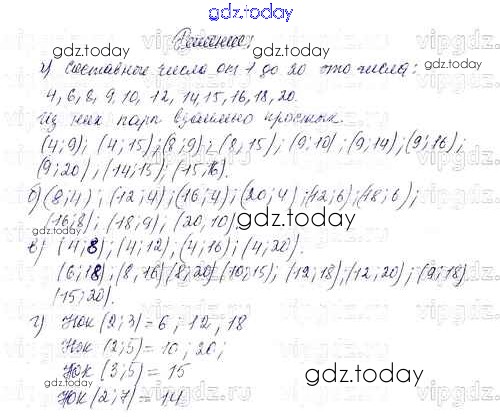 gdz.today
Решение:
а) Составные числа от 1 до 20 это числа:
4, 6, 8, 9, 10, 12, 14, 15, 16, 18, 20.
Из них пары взаимно простых.
(4;9); (4;15); (8;9); (8;15); (9;10); (9;14); (9;16);
(9;20); (14;15); (15;16).
б) (8;4); (12;4); (16;4); (20;4); (12;6); (18;6);
(16;8); (18;9); (20,10)
в) (4;8); (4;12), (4;16); (4;20).
(6;18), (8,16) (8;20) (10;15), (12;18), (12;20); (9;18)
(15;20).
г) НОК (2;3) = 6; 12, 18
НОК (2;5) = 10; 20;
НОК (3;5) = 15
НОК (2;7) = 14
gdz.today
gdz.today
gdz.today
gdz.today
gdz.today
gdz.today
gdz.today